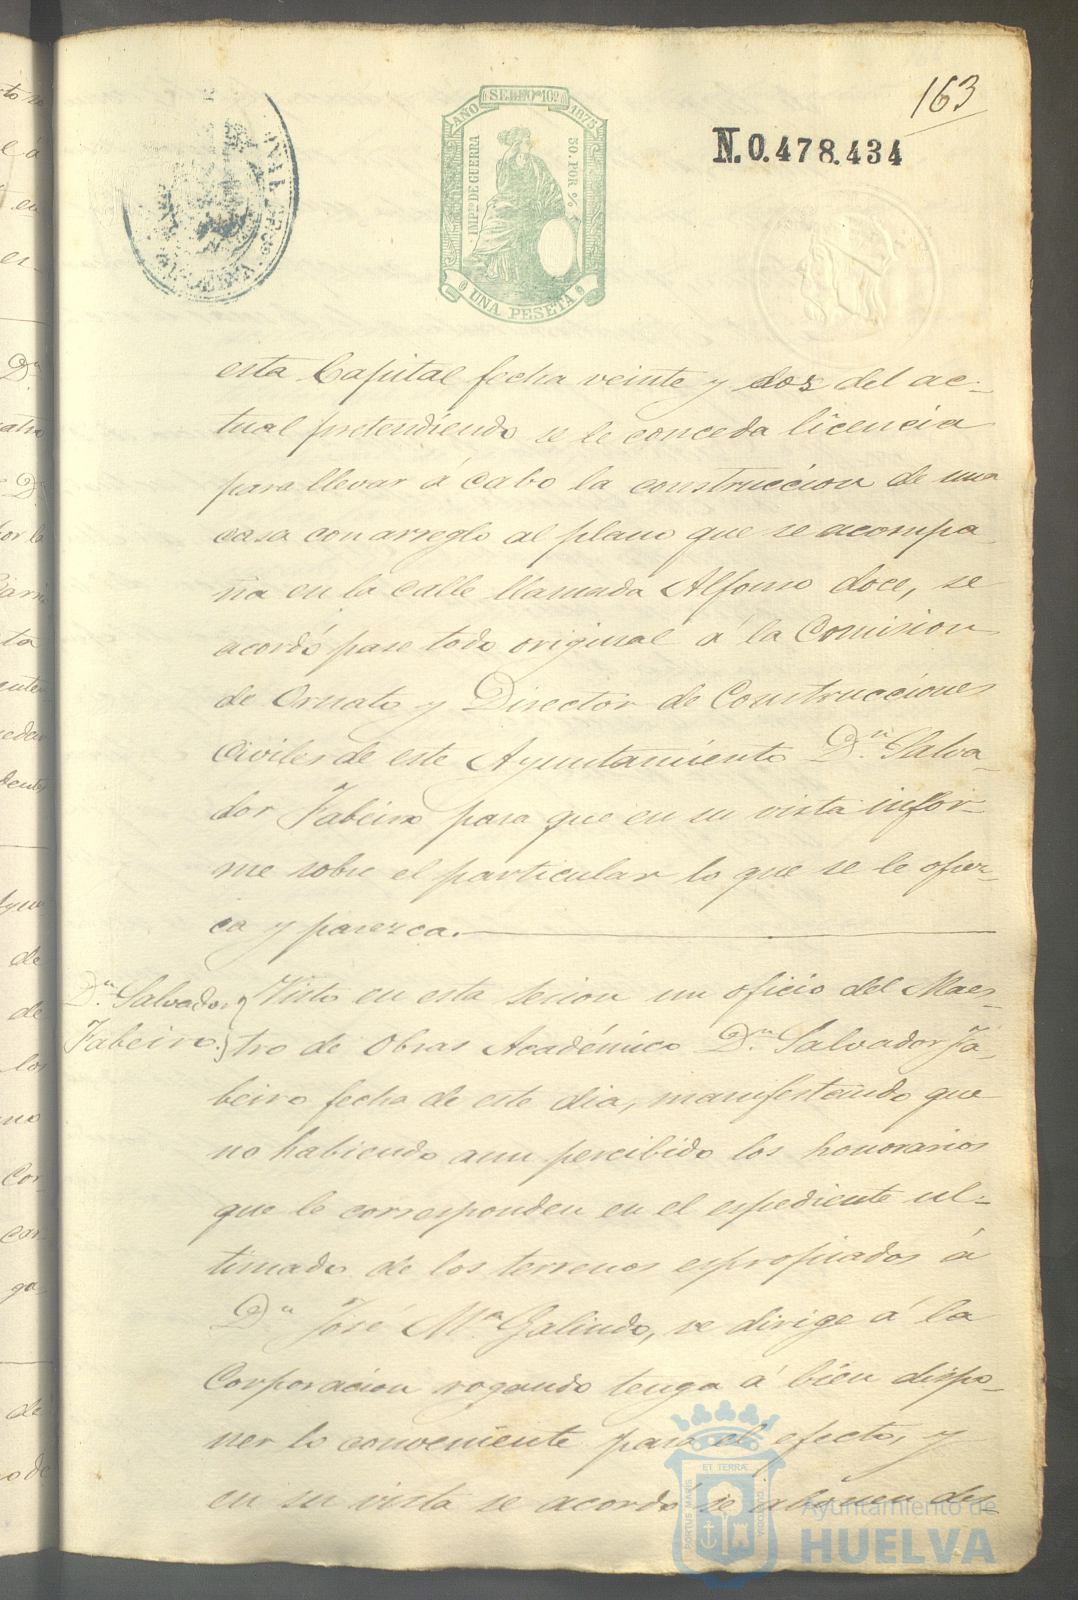 163
AÑO SELLO 10º 1875
IMPTO DE GUERRA
50. POR %
UNA PESETA
N. 0.478.434
esta Capital fecha veinte y dos del ac-
tual pretendiendo se le conceda licencia
para llevar á cabo la construccion de una
casa con arreglo al plano que se acompa
ña en la calle llamada Alfonso doce, se
acordó pase todo original á la Comision
de Ornato y Director de Construcciones
Civiles de este Ayuntamiento Dn. Salva-
dor Fabeiro para que en su vista infor-
me sobre el particular lo que se le ofrez-
ca y parezca.
Dn. Salvador
Fabeiro.
Visto en esta sesion un oficio del Maes-
tro de Obras Académico Dn. Salvador Fa-
beiro fecha de este dia, manifestando que
no habiendo aun percibido los honorarios
que le corresponden en el espediente ul-
timado de los terrenos espropiados á
Dn José Mª Galindo, se dirige á la
Corporacion rogando tenga á bien dispo-
ner lo conveniente para el efecto, y
en su vista se acordó se abonen des-
PORTUS MARIS ET TERRÆ CUSTODIA
Ayuntamiento de
HUELVA